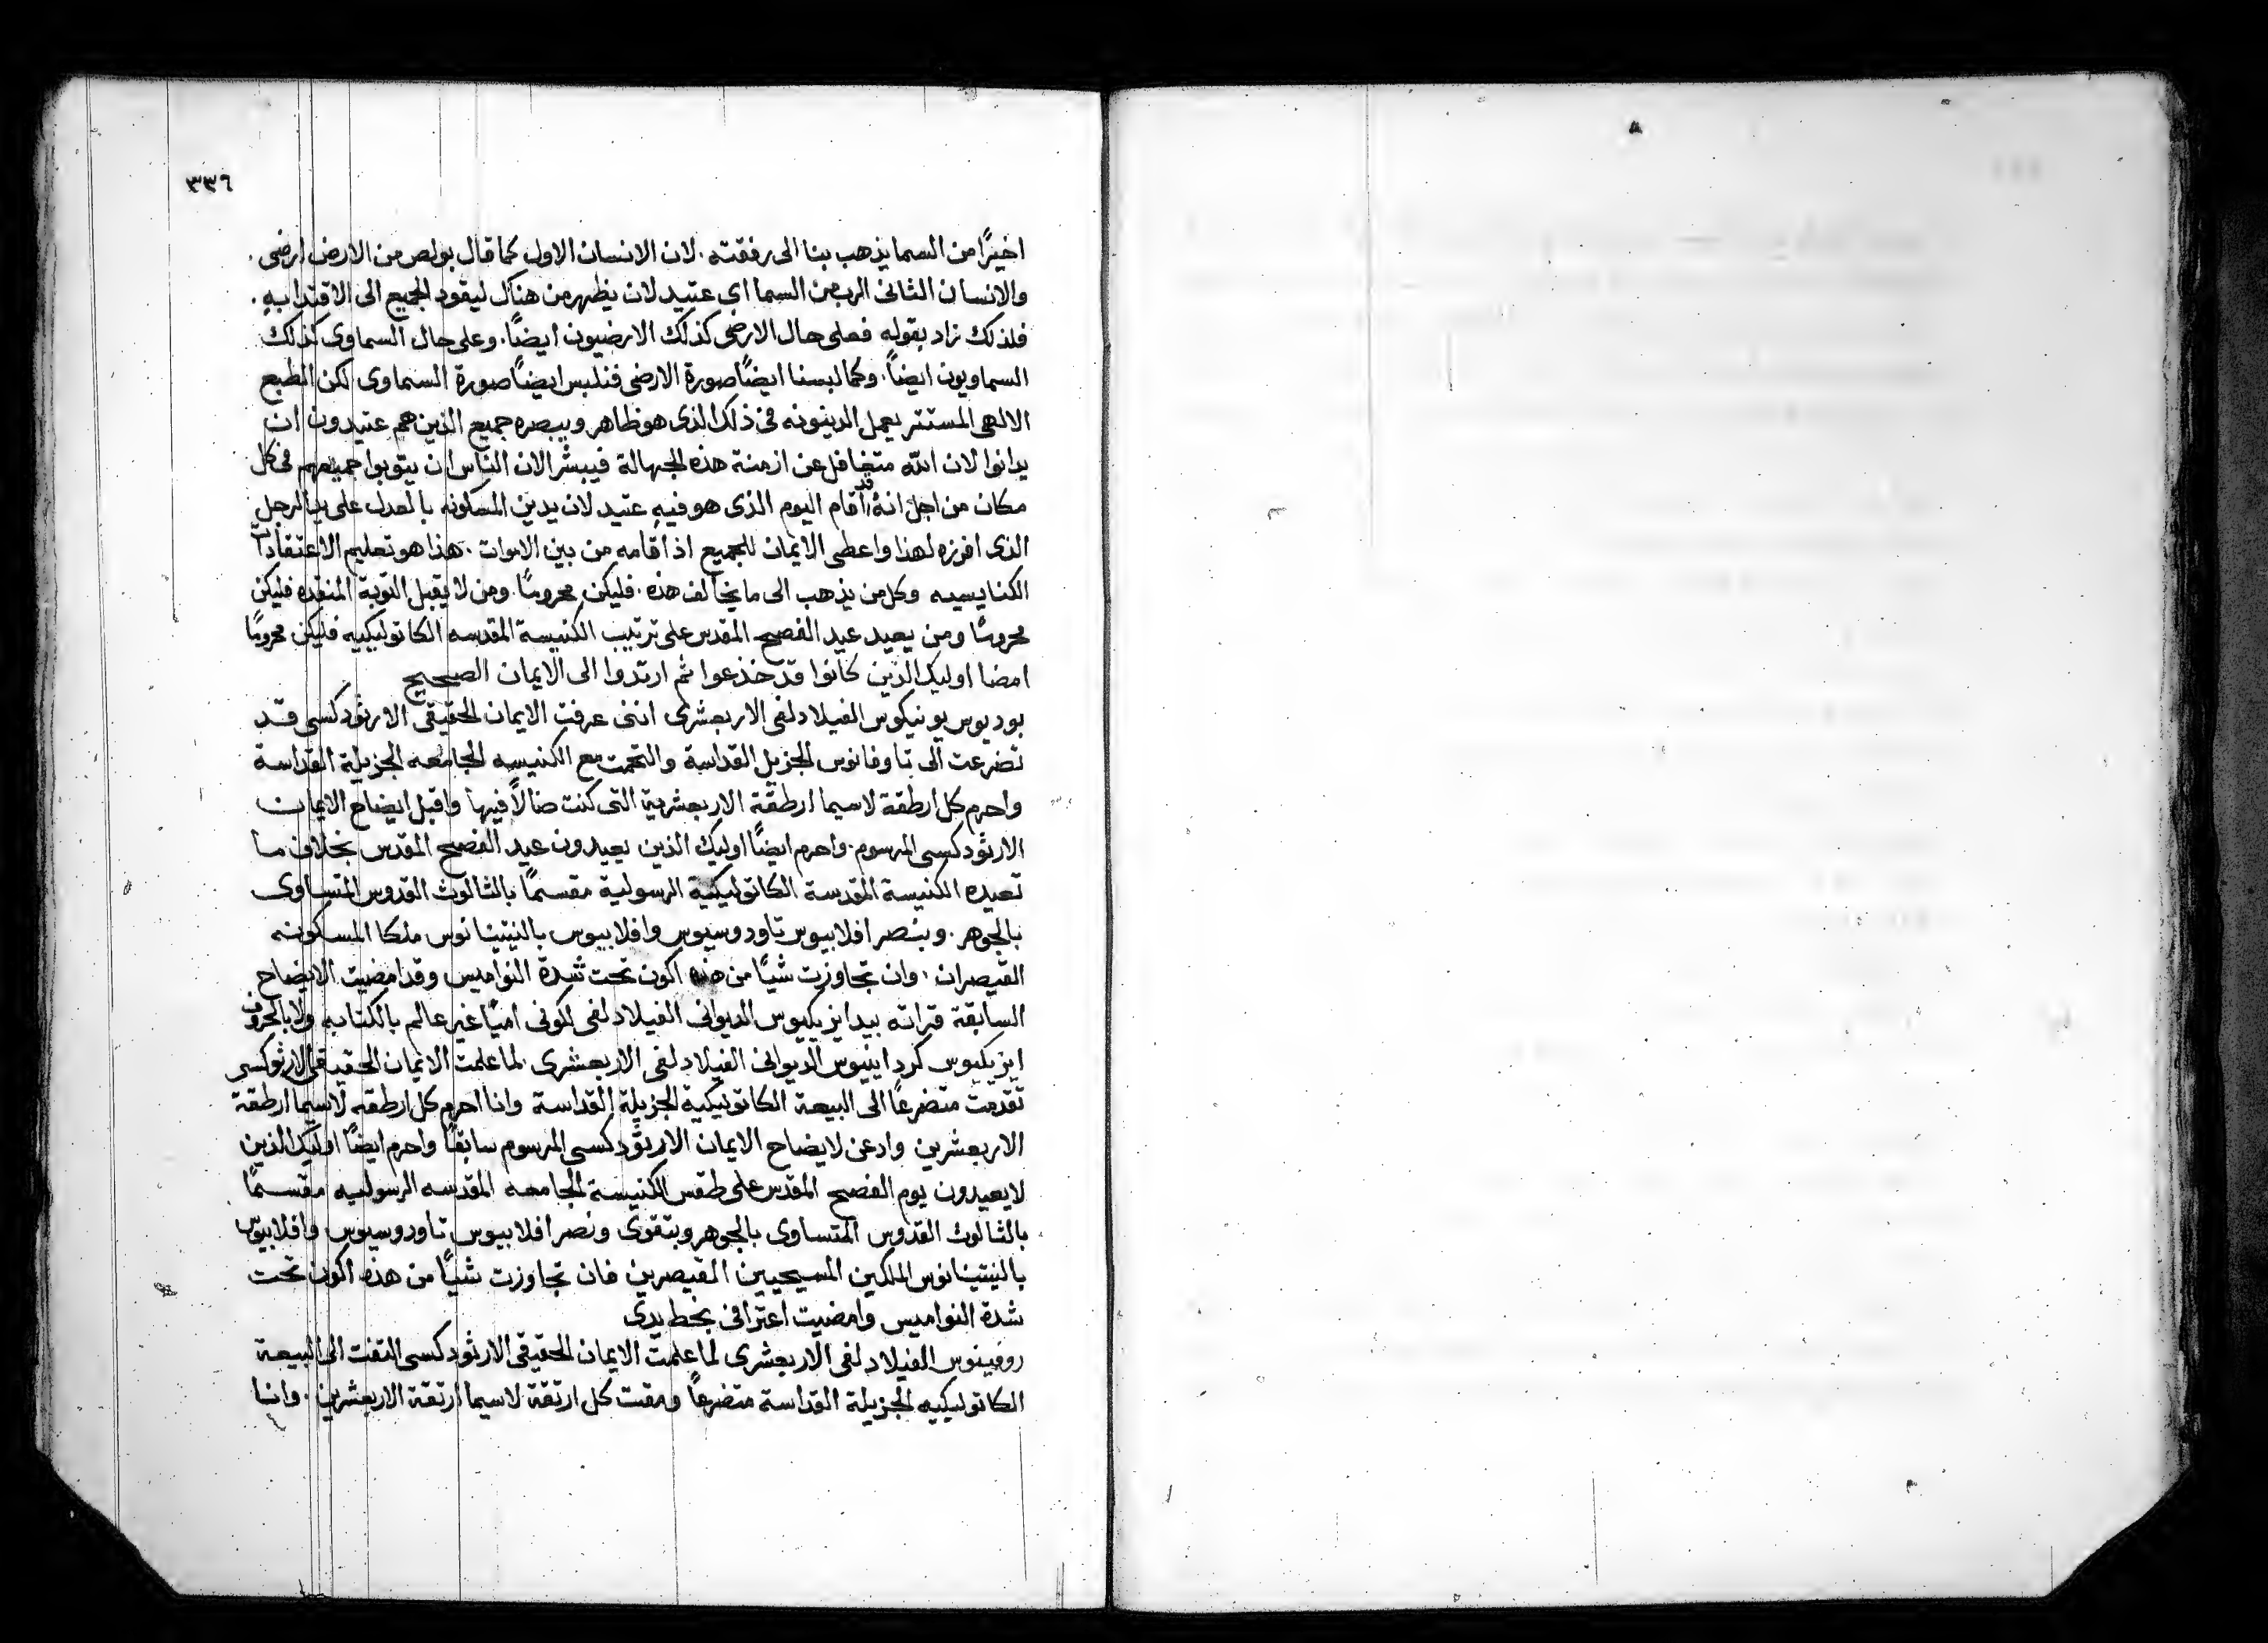 ٣٣٦
اخيرًا من السما يذهب بنا الى رفقته . لان الانسان الاول كما قال بولص من الارض ارضى .
والانسان الثانى الرب من السما اى عتيد لان يظهر من هناك ليقود الجميع الى الاقتدا بهِ .
فلذلك زاد بقوله فعلى حال الارضى كذلك الارضيون ايضًا . وعلى حال السماوى كذلك
السماويون ايضاً . وكما لبسنا ايضًا صورة الارضى فنلبس ايضًا صورة السماوى لكن الطبع
الالهى المستتر يعمل الدينونه فى ذلك الذى هو ظاهر ويبصره جميع الذين هم عتيدون ان
يدانوا لان الله متغافل عن ازمنة هذه الجهالة فيبشر الان الناس ان يتوبوا جميعهم فى كل
مكان من اجل انهُ قد أقام اليوم الذى هو فيهِ عتيد لان يدين المسكونه بالعدل على يد الرجل
الذى افرزه لهذا واعطى الايمان للجميع اذ اقامه من بين الاموات . هذا هو تعليم الاعتقادات
الكنايسيه وكل من يذهب الى ما يخالف هذه . فليكن محرومًا . ومن لا يقبل التوبة المنقده فليكن
محرومًا ومن يعيد عيد الفصح المقدس على ترتيب الكنيسة المقدسه الكاتوليكيه فليكن محرومًا
امضا اوليك الذين كانوا قد خذعوا ثم ارتدوا الى الايمان الصحيح
بوديوس يونيكوس الفيلادلفى الاربعشرى اننى عرفت الايمان الحقيقى الارثودكسى قد
تضرعت الى تاوفانوس الجزيل القداسة والتحمت مع الكنيسه الجامعه الجزيلة القداسة
واحرم كل ارطقة لاسيما ارطقة الاربعشرية التى كنت ضالاً فيها واقبل ايضاح الايمان
الارثودكسى المرسوم . واحرم ايضًا اوليك الذين يعيدون عيد الفصح المقدس بخلاف ما
تعيده الكنيسة المقدسة الكاتوليكية الرسولية مقسمًا بالثالوث القدوس المتساوى
بالجوهر . وبنصر افلابيوس تاودوسيوس وافلابيوس بالنيتينانوس ملكا المسكونه
القيصران . وان تجاوزت شيًا من هذه اكون تحت شدة النواميس وقد امضيت الايضاح
السابقة قراته بيد ايزيكيوس الديوانى الفيلادلفى لكونى اميًا غير عالم بالكتابه ولا بالحروف
ايزيكيوس كرداينيوس الديوانى الفيلادلفى الاربعشرى . لما علمت الايمان الحقيقى الارثوكسى
تقدمت متضرعًا الى البيعة الكاتوليكية الجزيلة القداسة وانا احرم كل ارطقه لاسيما ارطقة
الاربعشرين وادعن لايضاح الايمان الارثودكسى المرسوم سابقًا واحرم ايضًا اوليك الذين
لا يعيدون يوم الفصح المقدس على طقس الكنيسة الجامعه المقدسه الرسوليه مقسمًا
بالثالوث القدوس المتساوى بالجوهر وبتقوى ونصر افلابيوس تاودوسيوس وافلابيوس
بالنيتينانوس الملكين المسيحيين القيصرين فان تجاوزت شيًا من هذه اكون تحت
شدة النواميس وامضيت اعترافى بخط يدى
روفينوس الفيلادلفى الاربعشرى لما علمت الايمان الحقيقى الارثودكسى التفت الى البيعة
الكاتوليكيه الجزيلة القداسة متضرعاً ومقت كل ارتقة لاسيما ارتقة الاربعشرين . وانا